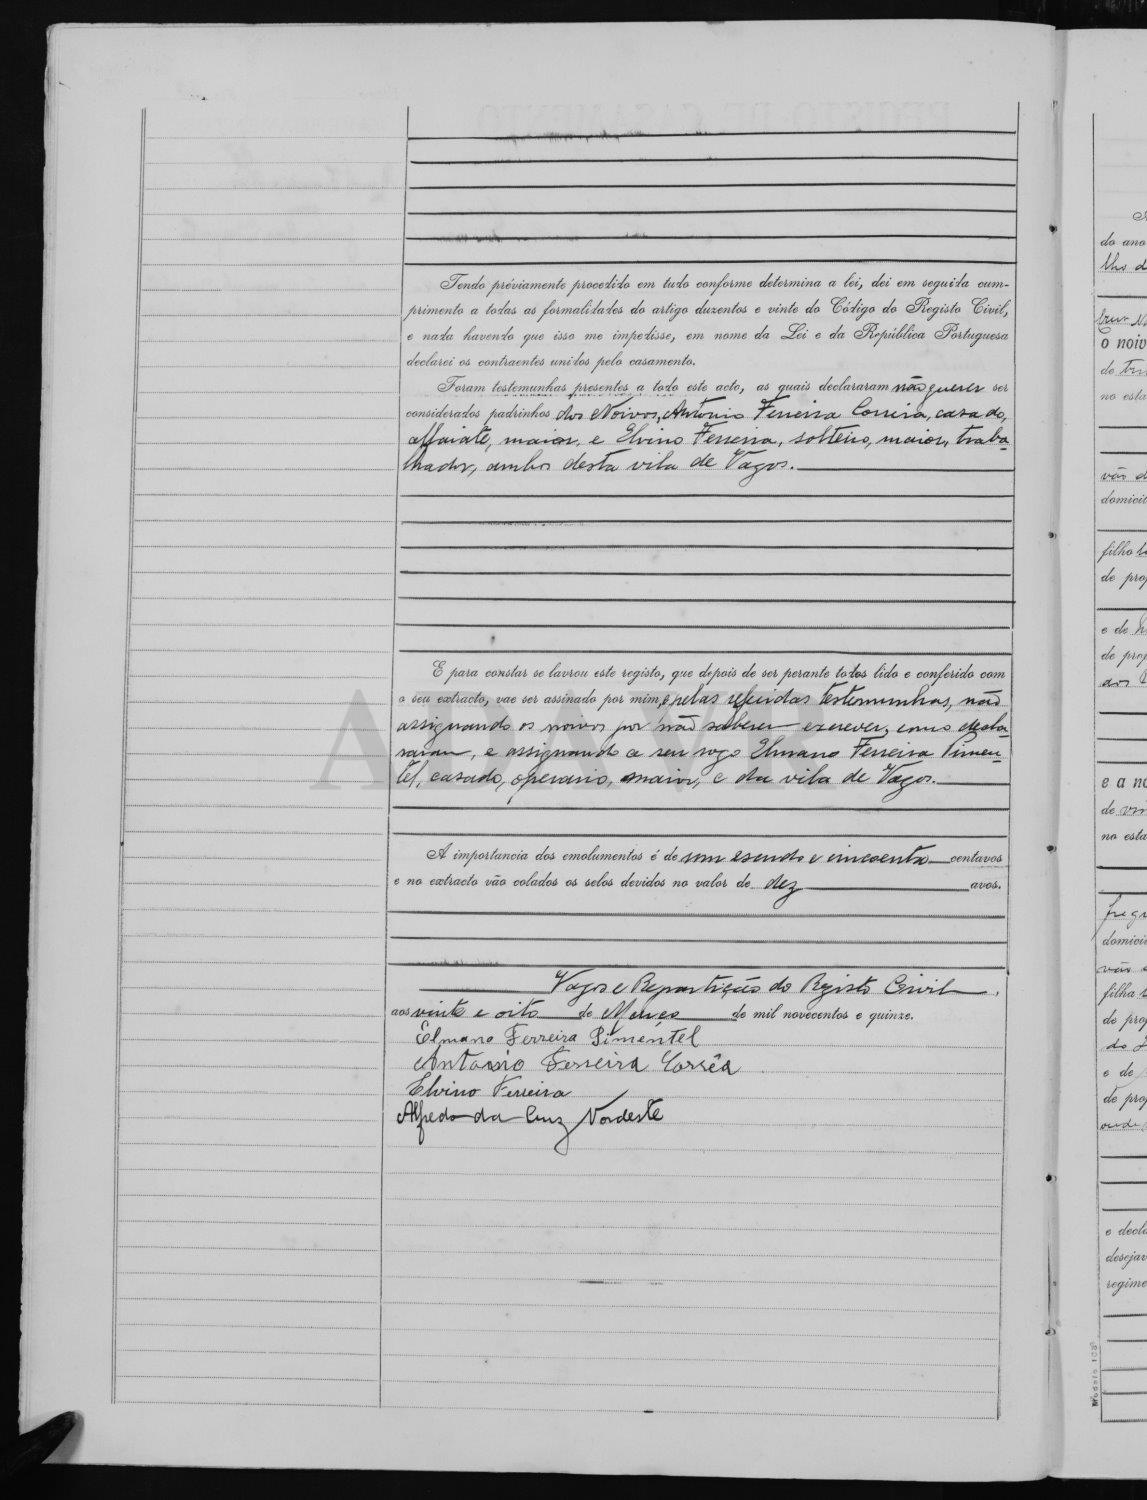 Tendo préviamente procedido em tudo conforme determina a lei, dei em seguida cum-
primento a todas as formalidades do artigo duzentos e vinte do Código do Registo Civil,
e nada havendo que isso me impedisse, em nome da Lei e da República Portuguesa
declarei os contraentes unidos pelo casamento.
Foram testemunhas presentes a todo este acto, as quais declararam não querer ser
considerados padrinhos dos Noivos, Antonio Ferreira Correia, casado,
alfaiate, maior, e Elvino Ferreira, solteiro, maior, traba-
lhador, ambos desta vila de Vagos.
E para constar se lavrou este registo, que depois de ser perante todos lido e conferido com
o seu extracto, vae ser assinado por mim, e pelas referidas testemunhas, não
assignando os noivos por não saberem escrever, como decla-
raram, e assignando a seu rogo Elmano Ferreira Pimen-
tel, casado, operario, maior, e da vila de Vagos.
A importancia dos emolumentos é de um escudo e cincoenta centavos
e no extracto vão colados os selos devidos no valor de dez avos.
Vagos e Repartição do Registo Civil,
aos vinte e oito de Março de mil novecentos e quinze.
Elmano Ferreira Pimentel
Antonio Ferreira Corrêa
Elvino Ferreira
Alfredo da Cruz Nordeste
do ano
o noiv
no esta
domicil
filho
de prop
e de
de prop
e a no
no esta
domici
filha
de prop
e de
de prop
e decla
desejav
regime
Modelo 108